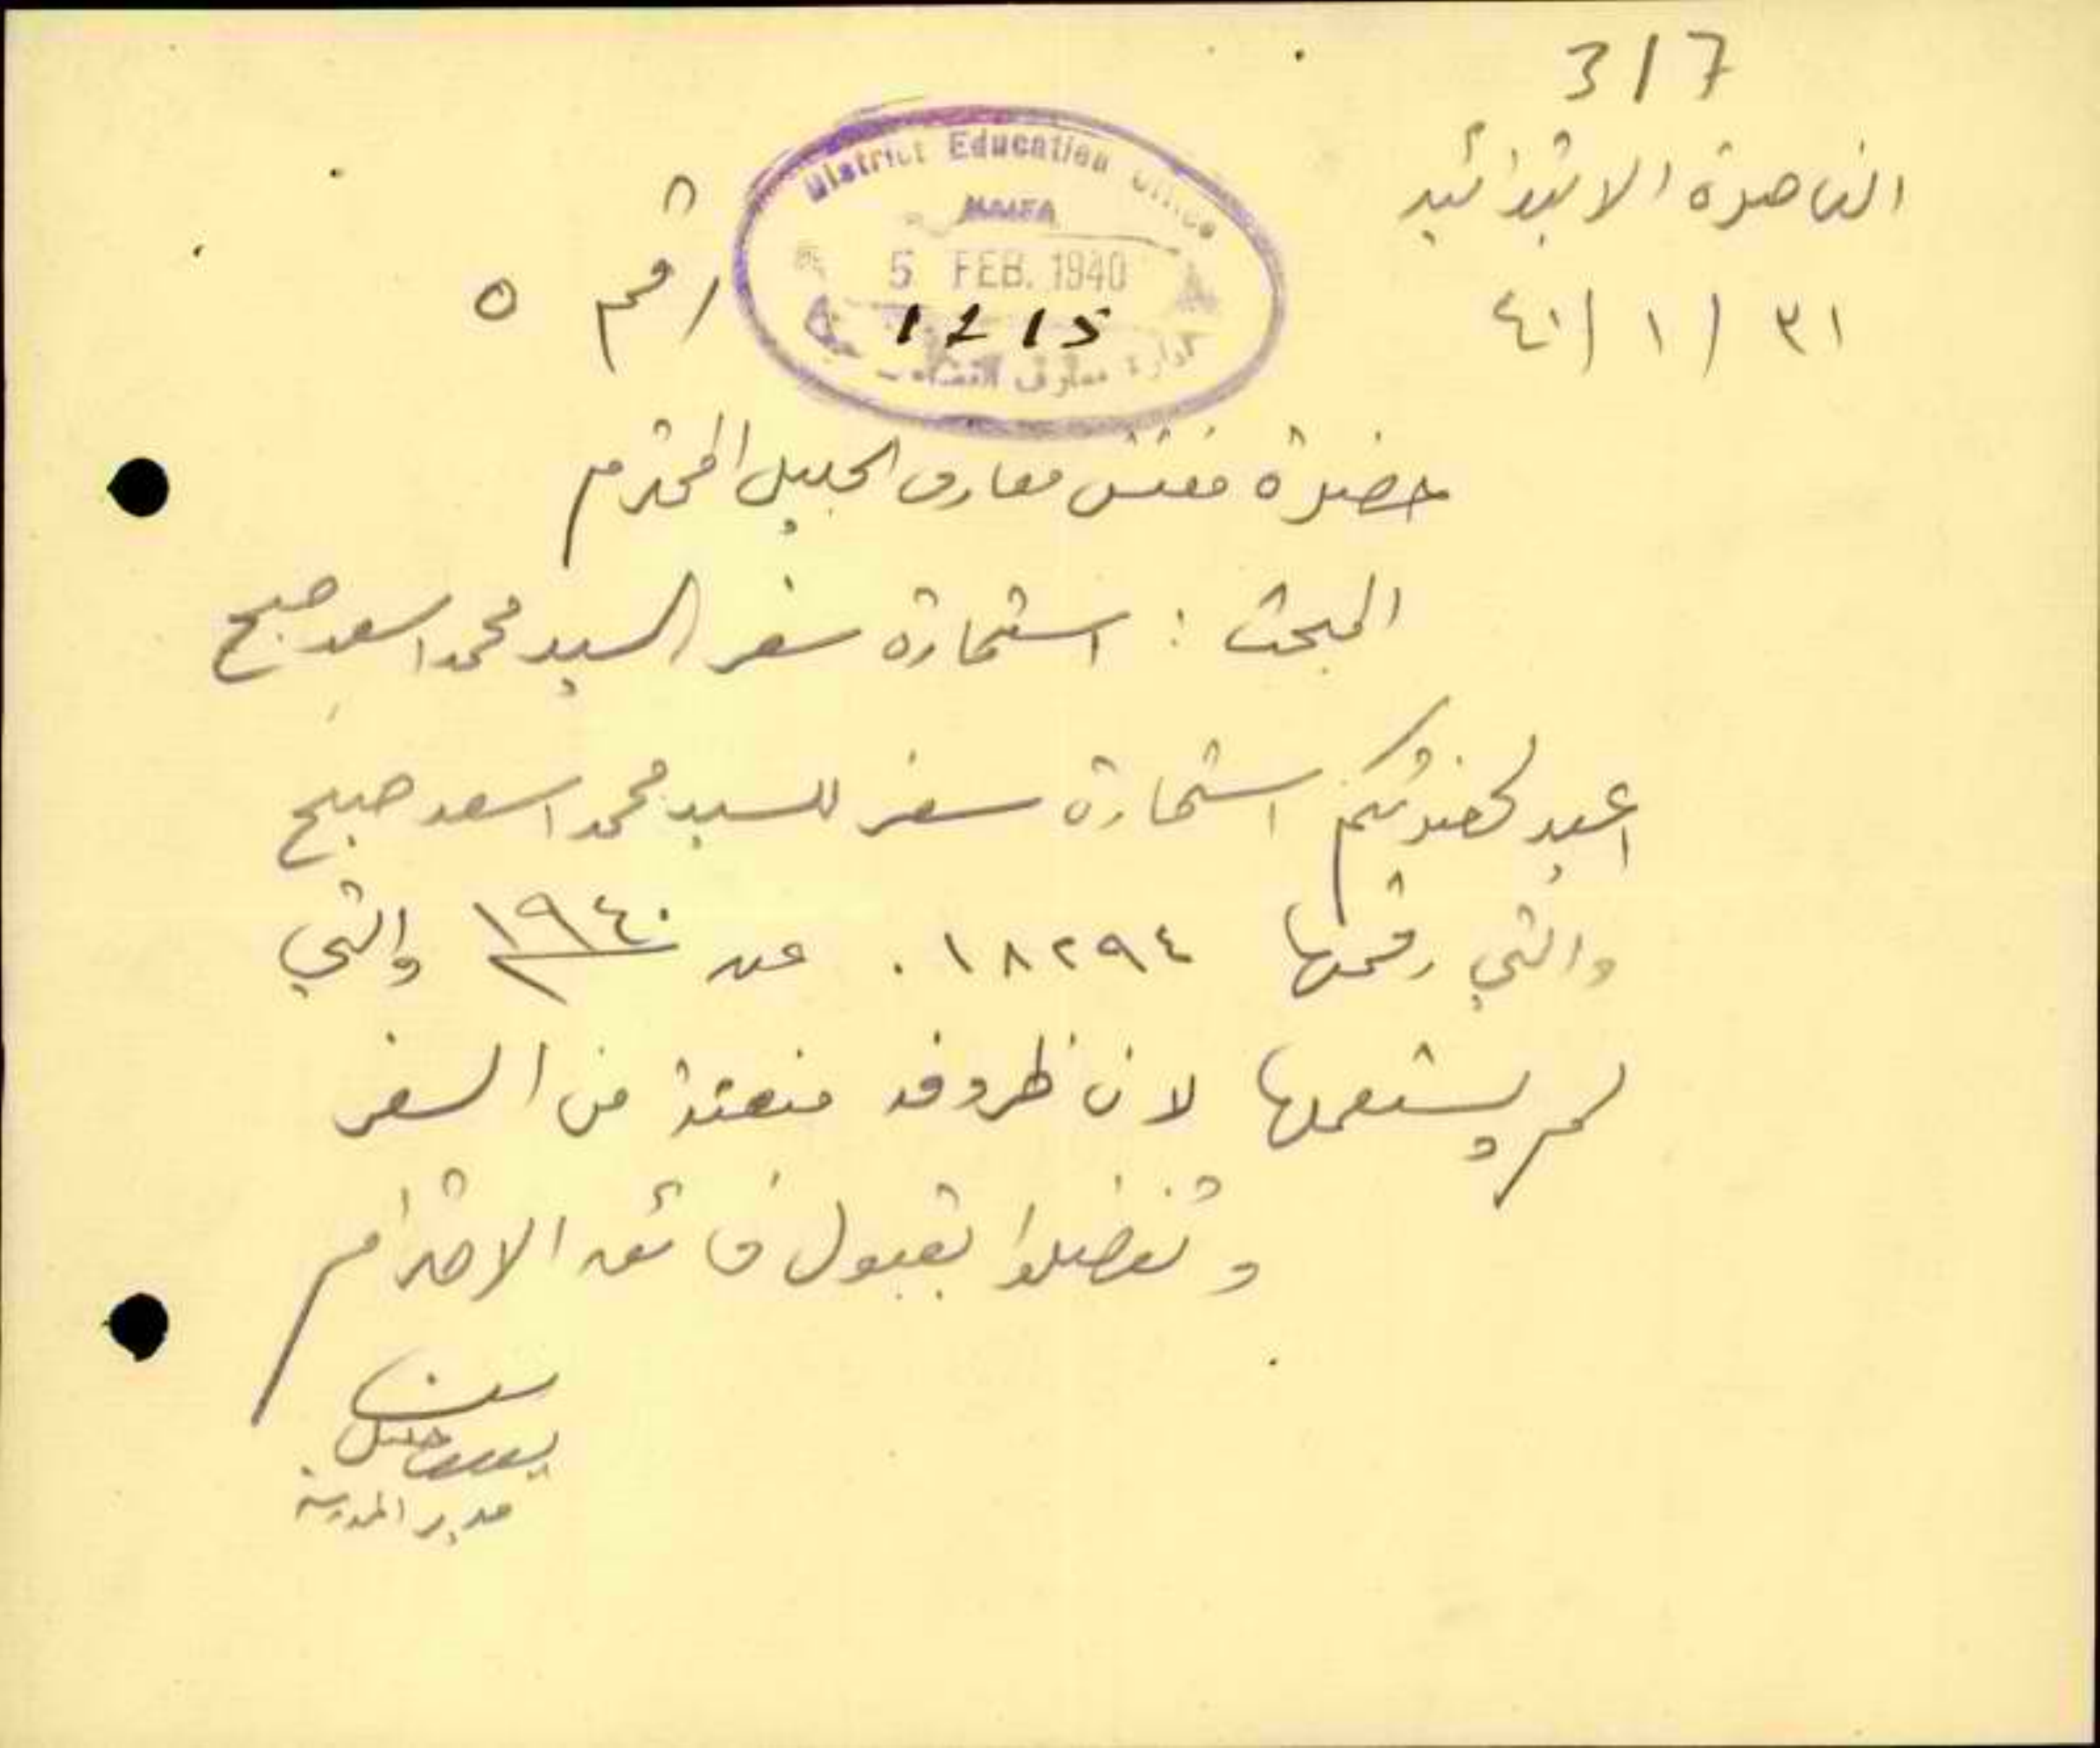 3/7
الناصرة الابتدائية
٣١ / ١ / ٤٠
رقم ٥
District Education Office
HAIFA
5 FEB. 1940
1215
ادارة معارف
حضرة مفتش معارف الجليل المحترم
المبحث : استمارة سفر السيد محمد اسعد صبح
اعيد لحضرتكم استمارة سفر للسيد محمد اسعد صبح
والتي رقمها ٠١٨٢٩٤ عن ١٩٤٠ والتي
لم يستعملها لان ظروفه منعته من السفر
وتفضلوا بقبول فائق الاحترام
خليل
مدير المدرسة